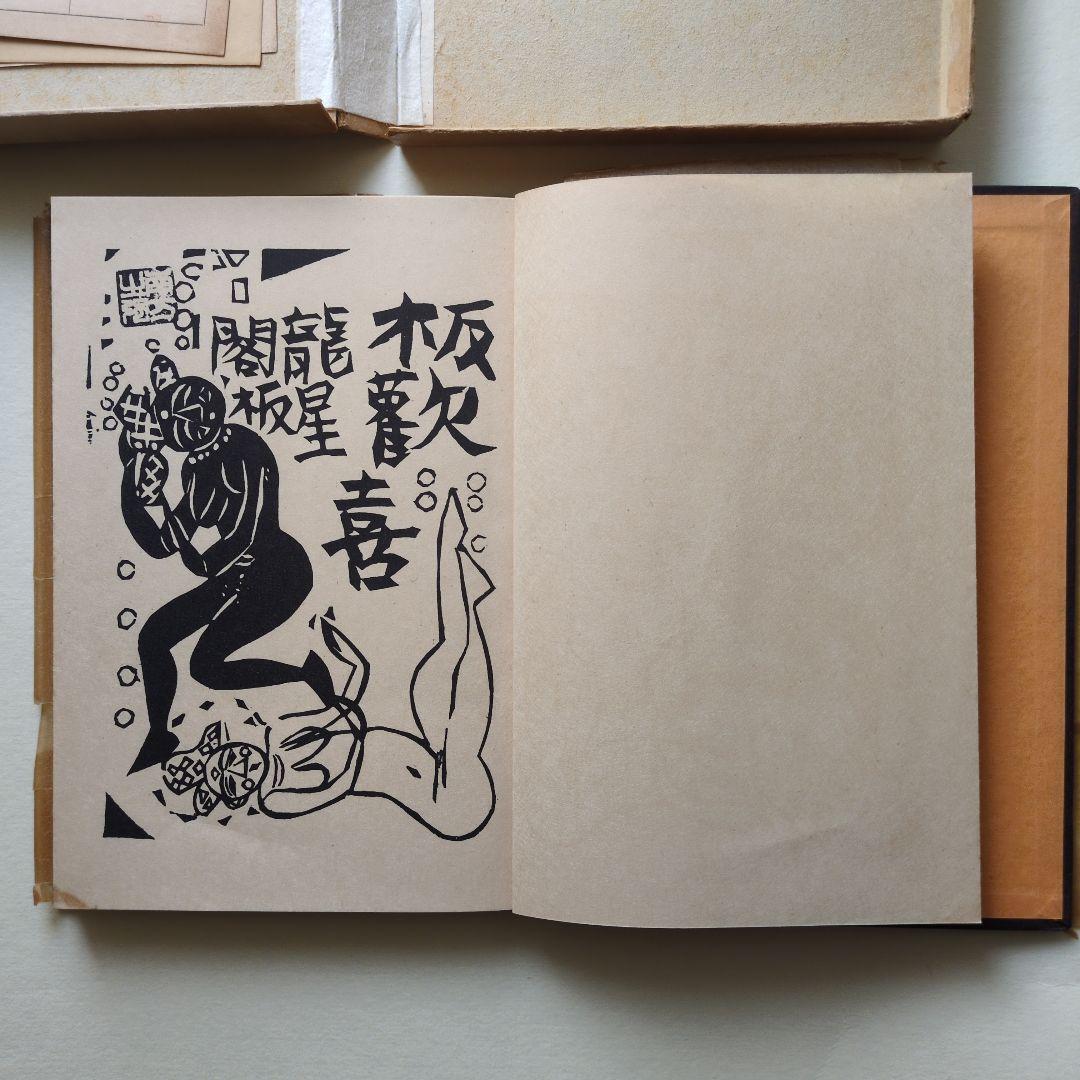 板歡喜
龍星
閣板